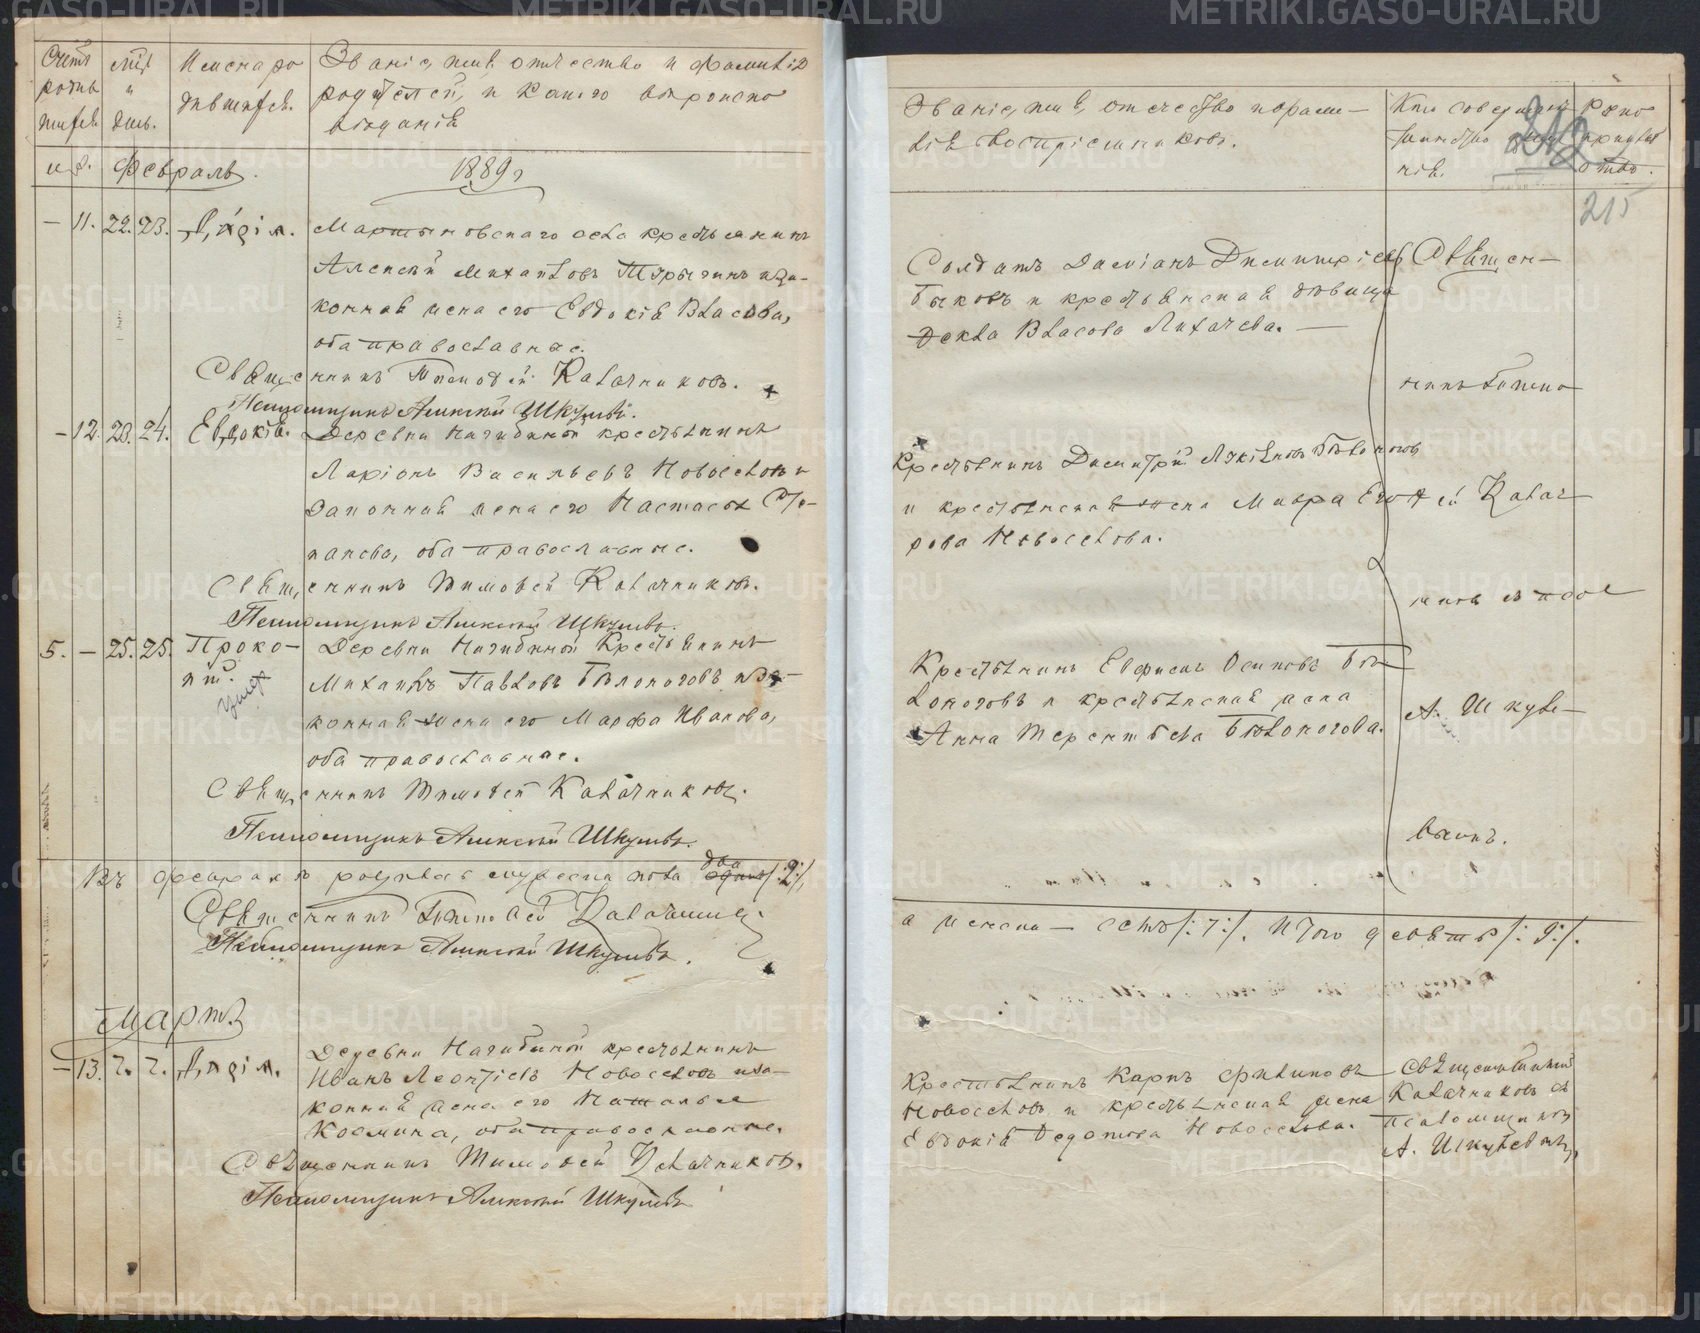 Счетъ родив шихся
Мѣс. и день.
Имена ро
дившихся.
Званіе, имя, отчество и фамилія
родителей, и какого вѣроиспо
вѣданія
м. ж. Февраль.
1889 г.
— 11. 22. 23. Лидія.
Мартыновскаго села крестьянинъ
Алексѣй Михайловъ и за-
конная жена его Евдокія Власова,
оба православные.
Священникъ Тимофей Калачниковъ.
Псаломщикъ Алексѣй Шкулевъ.
— 12. 23. 24. Евдокія.
Деревни Нагибиной крестьянинъ
Ларіонъ Васильевъ Новоселовъ и
законная жена его Настасья Сте-
панова, оба православные.
Священникъ Тимофей Калачниковъ.
Псаломщикъ Алексѣй Шкулевъ.
5. — 25. 25. Проко-
пій.
Деревни Нагибиной Крестьянинъ
Михаилъ Павловъ Бѣлоноговъ и за-
конная жена его Марфа Иванова,
оба православные.
Священникъ Тимофей Калачниковъ.
Псаломщикъ Алексѣй Шкулевъ.
Въ февралѣ родилось мужеска пола два /:2:/,
Священникъ Тимофей Калачниковъ.
Псаломщикъ Алексѣй Шкулевъ.
Мартъ
— 13. 7. 7. Лидія.
Деревни Нагибиной крестьянинъ
Иванъ Леонтіевъ Новоселовъ и за-
конная жена его Наталья
Космина, оба православные.
Священникъ Тимофей Калачниковъ.
Псаломщикъ Алексѣй Шкулевъ
Званіе, имя, отчество и фами—
лія воспріемниковъ.
Кто совершалъ
таинство
нія.
Руко
прикладст
ство.
215
Солдатъ Даміанъ Димитріевъ
Быковъ и крестьянская дѣвица
Ѳекла Власова Лихачева. —
Священ-
никъ Тимо
Крестьянинъ Димитрій Бѣлоноговъ
и крестьянская жена Мавра Его
рова Новоселова.
ѳей Калач
никовъ съ псал
Крестьянинъ Евфимъ Осиповъ Бѣ
лоноговъ и крестьянская жена
Анна Терентьева Бѣлоногова.
А. Шкуле—
вымъ.
а женска — семь /:7:/. Итого девять /:9:/.
Крестьянинъ Карпъ Филиповъ
Новоселовъ и крестьянская жена
Евдокія Ѳедотова Новоселова.
Священникъ
Калачниковъ съ
псаломщикомъ
А. Шкулевымъ.
METRIKI.GASO-URAL.RU